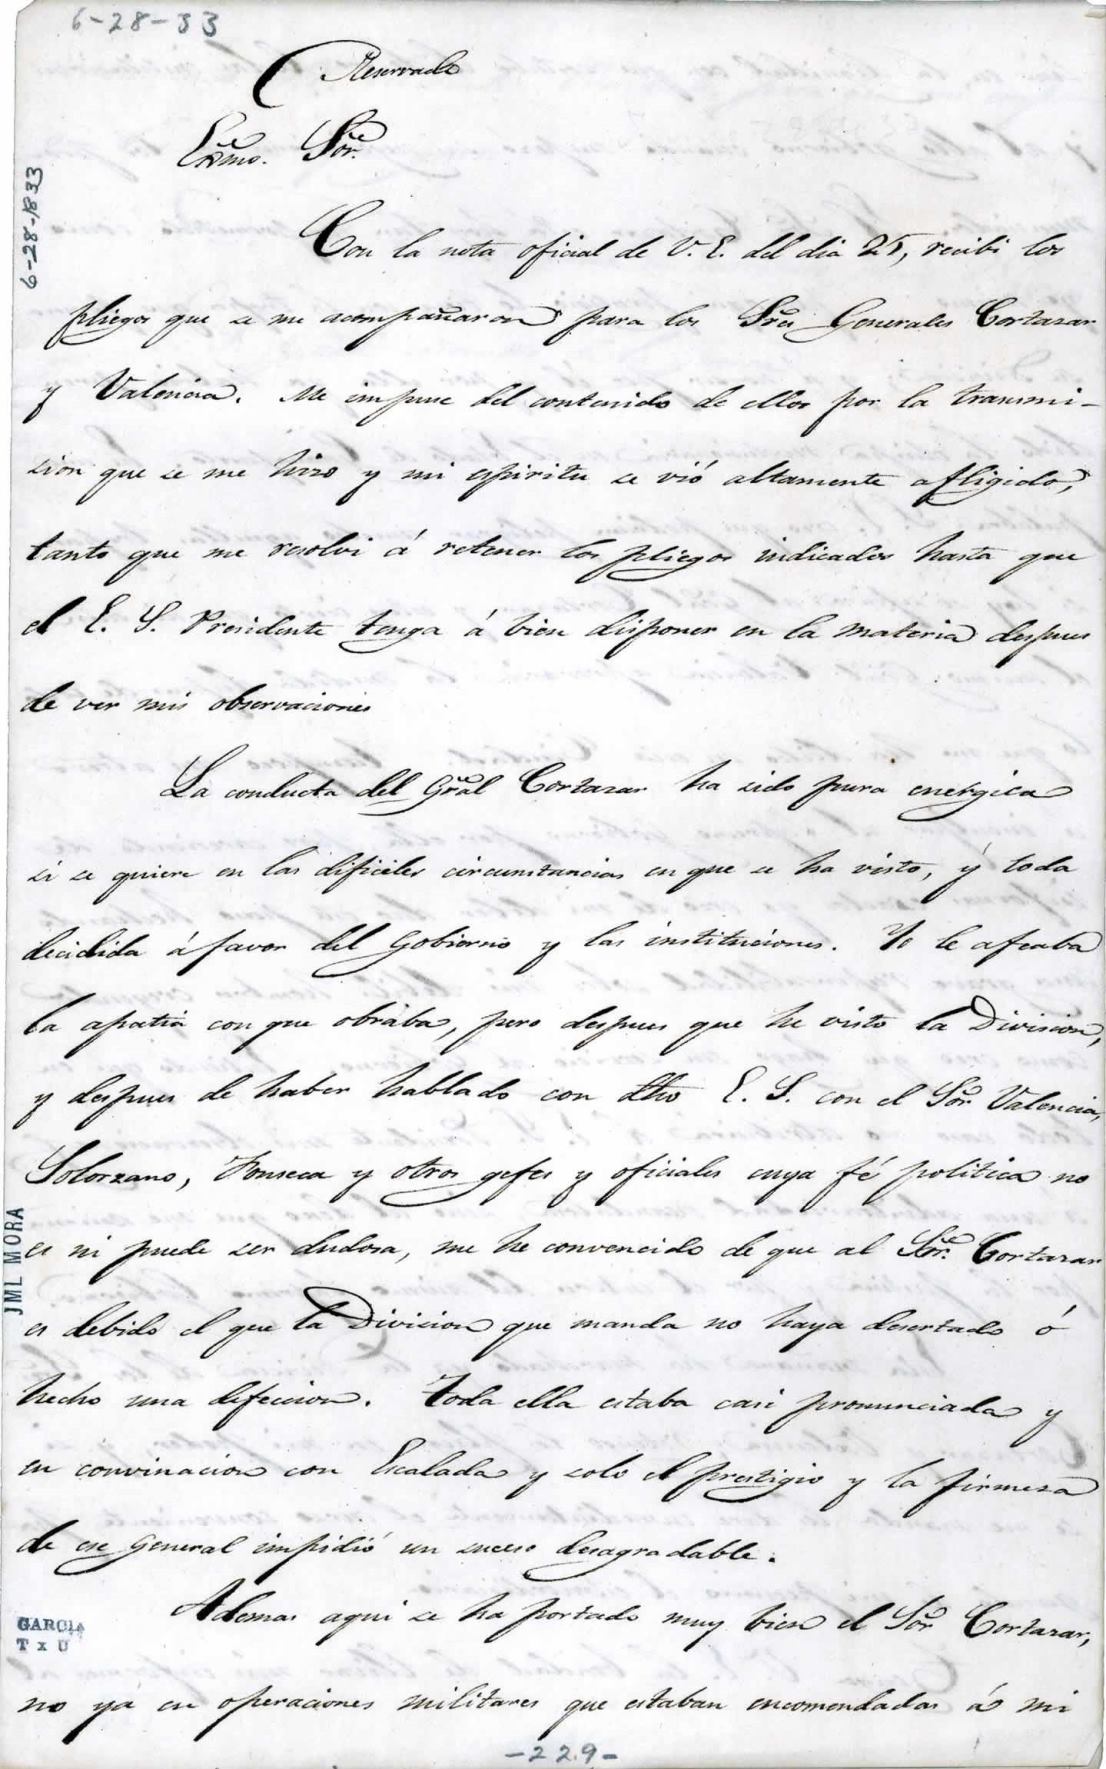 6-28-33
Reservado
Exmo. Sor.
6-28-1833
Con la nota oficial de V. E. del dia 25, recibi los
pliegos que se me acompañaron para los Sres Generales Cortazar
y Valencia. Me impuse del contenido de ellos por la transmi-
sion que se me hizo y mi espiritu se vió altamente afligido,
tanto que me resolvi á retener los pliegos indicados hasta que
el E. S. Presidente tenga á bien disponer en la materia despues
de ver mis observaciones
La conducta del Gral Cortazar ha sido pura energica
si se quiere en las dificiles circunstancias en que se ha visto, y toda
decidida á favor del Gobierno y las instituciones. Yo le afeaba
la apatia con que obraba, pero despues que he visto la Division,
y despues de haber hablado con dho E. S. con el Sor Valencia,
Solorzano, Fonseca y otros gefes y oficiales cuya fé politica no
es ni puede ser dudosa, me he convencido de que al Sor. Cortazar
es debido el que la Division que manda no haya desertado ó
hecho una defeccion. Toda ella estaba casi pronunciada y
en convinacion con Escalada y solo el prestigio y la firmeza
de ese General impidió un suceso desagradable.
Ademas aqui se ha portado muy bien el Sor Cortazar,
no ya en operaciones militares que estaban encomendadas á mi
JML MORA
GARCIA
T x U
-229-